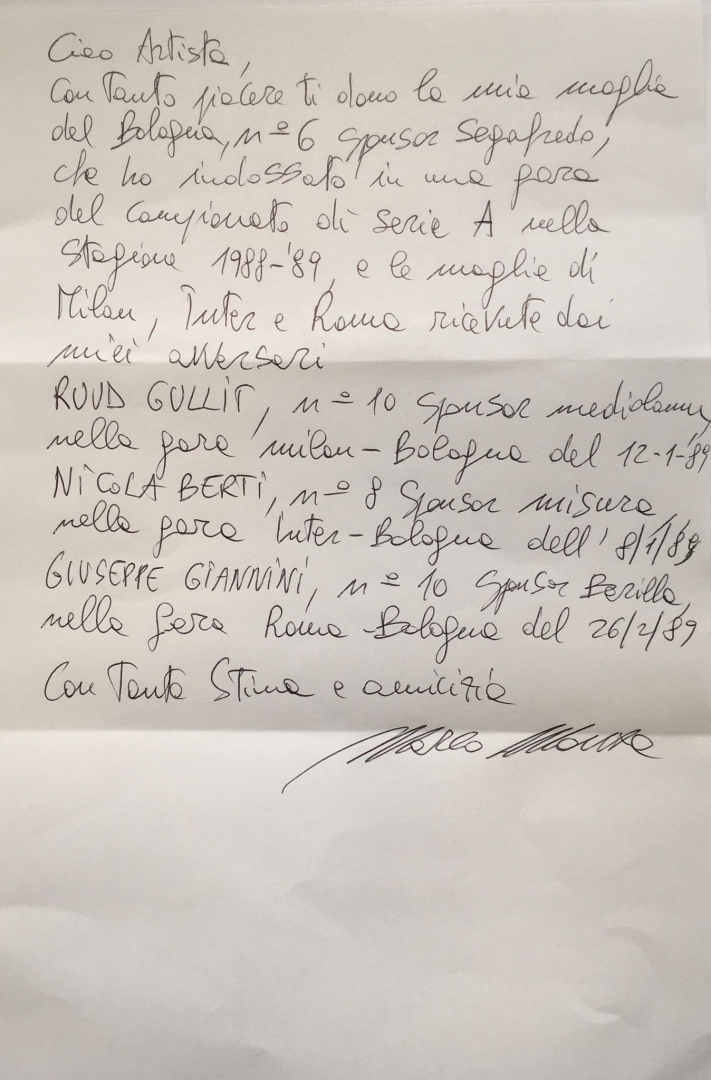 Ciao Artista,
con tanto piacere ti dono la mia maglia
del Bologna, nº 6 sponsor Segafredo,
che ho indossato in una gara
del campionato di serie A nella
stagione 1988-'89, e le maglie di
Milan, Inter e Roma ricevute dai
miei avversari
RUUD GULLIT, nº 10 sponsor mediolanum,
nella gara milan-Bologna del 12-1-'89
NICOLA BERTI, nº 8 sponsor misura,
nella gara Inter-Bologna dell' 8/1/89
GIUSEPPE GIANNINI, nº 10 sponsor Barilla,
nella gara Roma-Bologna del 26/2/89
Con tanta stima e amicizia
Marco